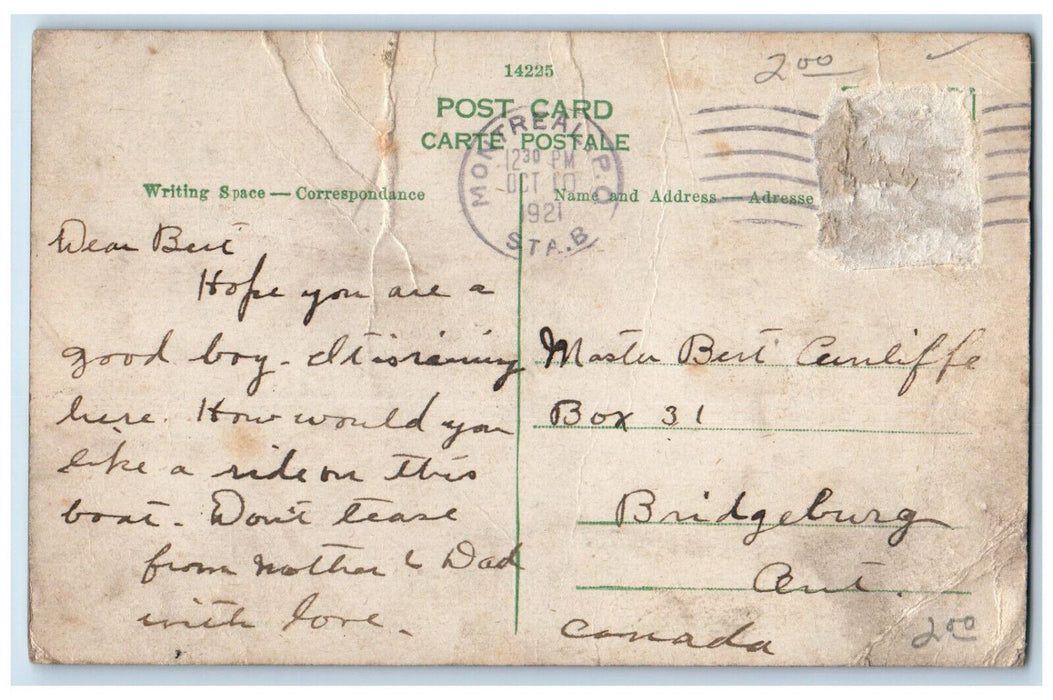 2⁰⁰
14225
POST CARD
CARTE POSTALE
MONTREAL P.Q.
12³⁰ PM
OCT 10
1921
STA. B
Writing Space — Correspondance
Name and Address — Adresse
Dear Bert
Hope you are a
good boy. It is raining
here. How would you
like a ride on this
boat. Don't tease
from Mother & Dad
with love.
Master Bert Cunliffe
Box 31
Bridgeburg
Ont.
Canada
2⁰⁰